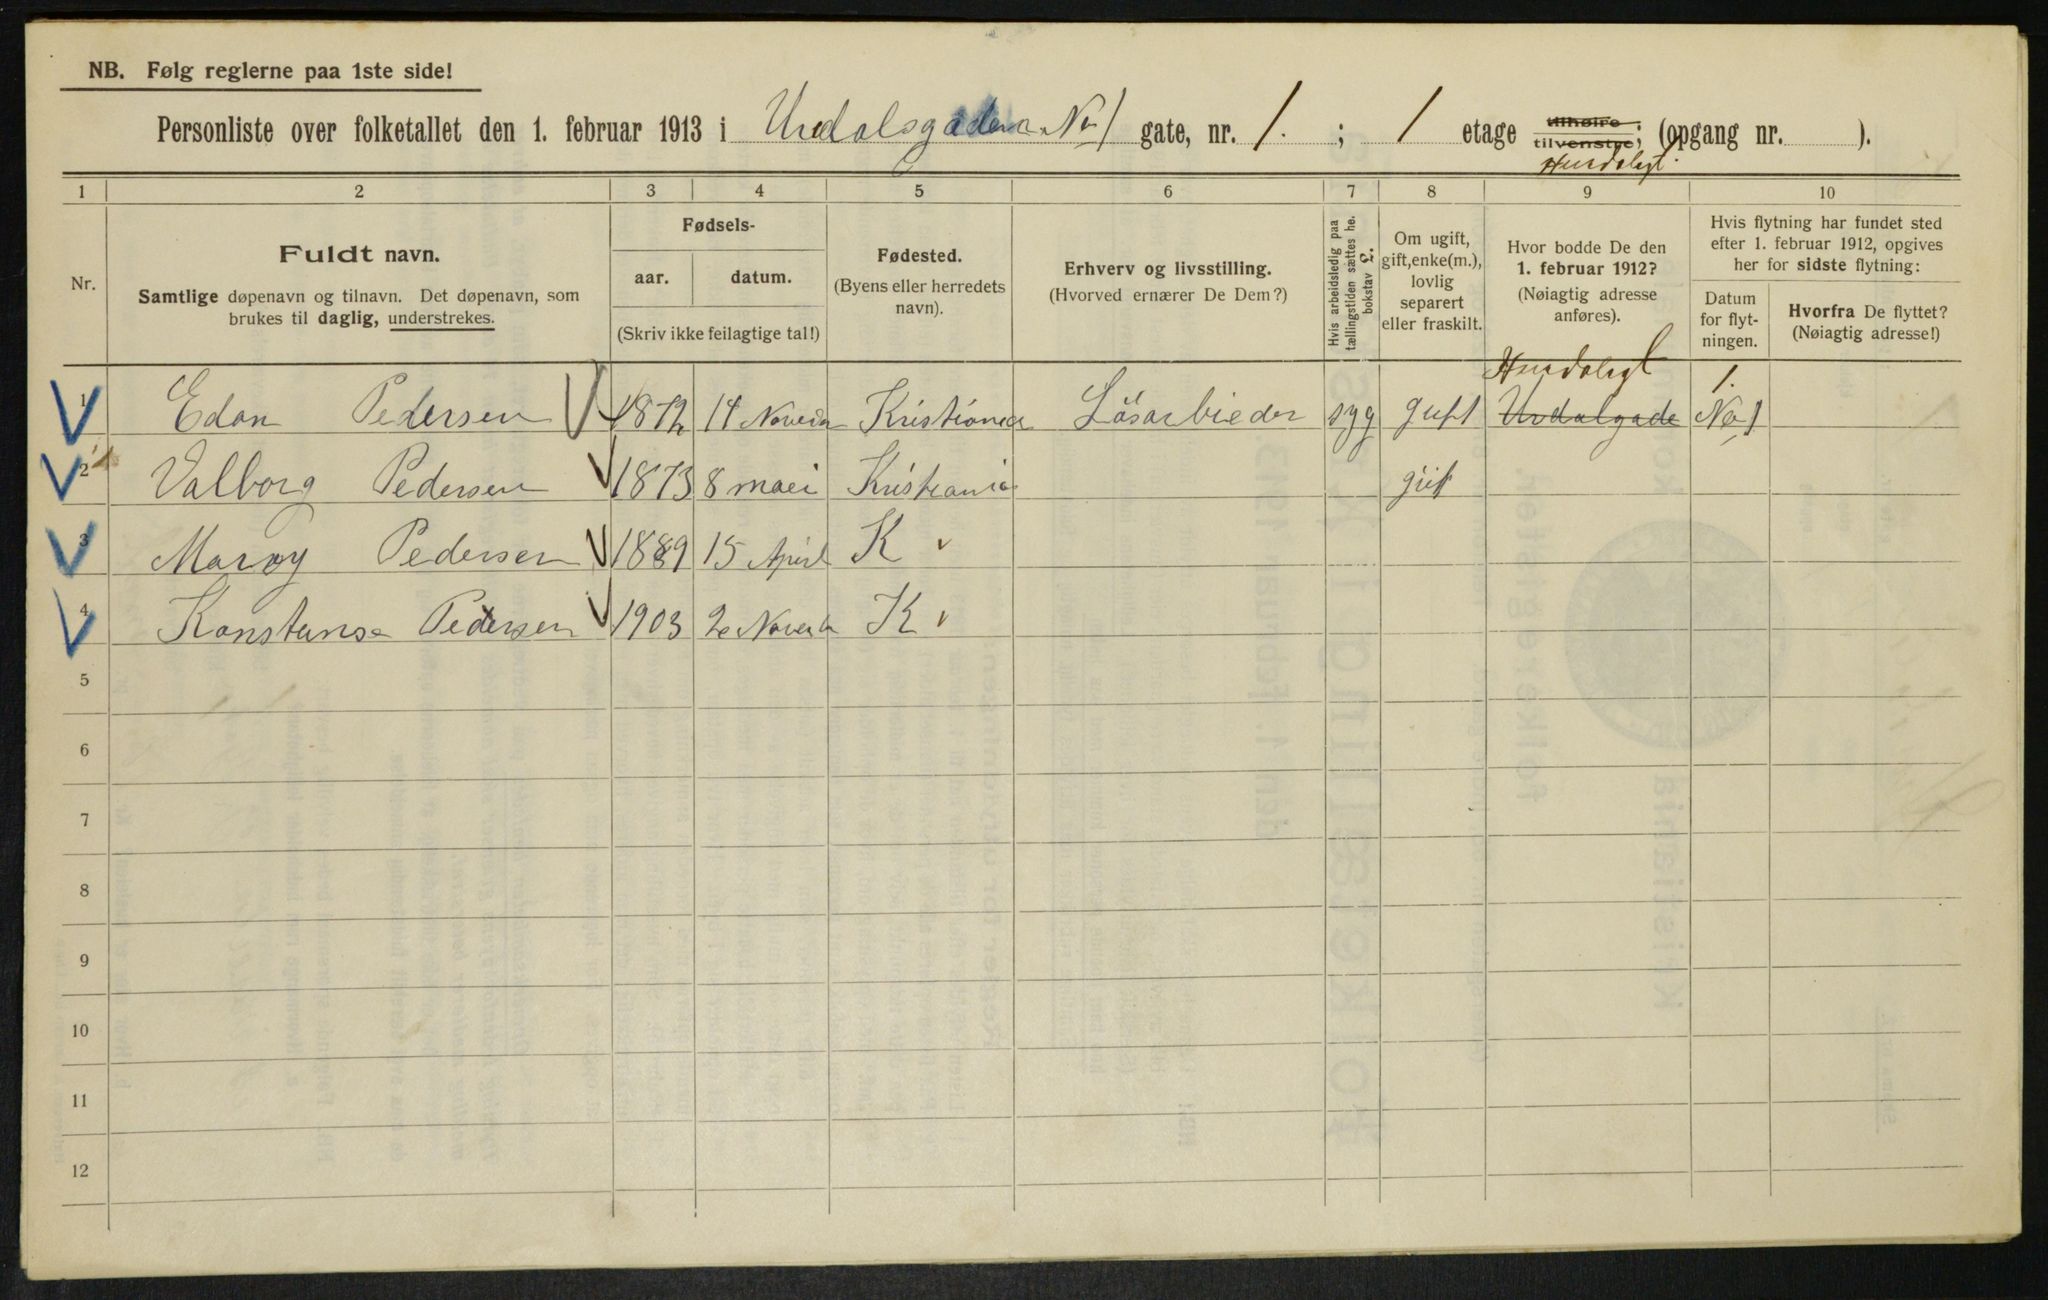 NB. Følg reglerne paa 1ste side!
Personliste over folketallet den 1. februar 1913 i Urdalsgadena No 1 gate, nr. 1. ; 1 etage tilhøire tilvenstre; (opgang nr. ).
Hurdalsgt.
1 2 3 4 5 6 7 8 9 10
Nr.
Fuldt navn.
Samtlige døpenavn og tilnavn. Det døpenavn, som
brukes til daglig, understrekes.
Fødsels-
aar. datum.
(Skriv ikke feilagtige tal!)
Fødested.
(Byens eller herredets
navn).
Erhverv og livsstilling.
(Hvorved ernærer De Dem?)
Hvis arbeidsledig paa
tællingstiden sættes he.
bokstav L.
Om ugift,
gift, enke(m.),
lovlig
separert
eller fraskilt.
Hvor bodde De den
1. februar 1912?
(Nøiagtig adresse
anføres).
Hvis flytning har fundet sted
efter 1. februar 1912, opgives
her for sidste flytning:
Datum
for flyt-
ningen.
Hvorfra De flyttet?
(Nøiagtig adresse!)
Hurdalsgt 1.
1 Edan Pedersen 1872 14 Kristiania Lösarbieder syg gift Urdalgade No 1
2 Valborg Pedersen 1873 8 maei Kristiania gift
3 Pedersen 1889 15 April K "
4 Konstanse Pedersen 1903 2 K "
5
6
7
8
9
10
11
12